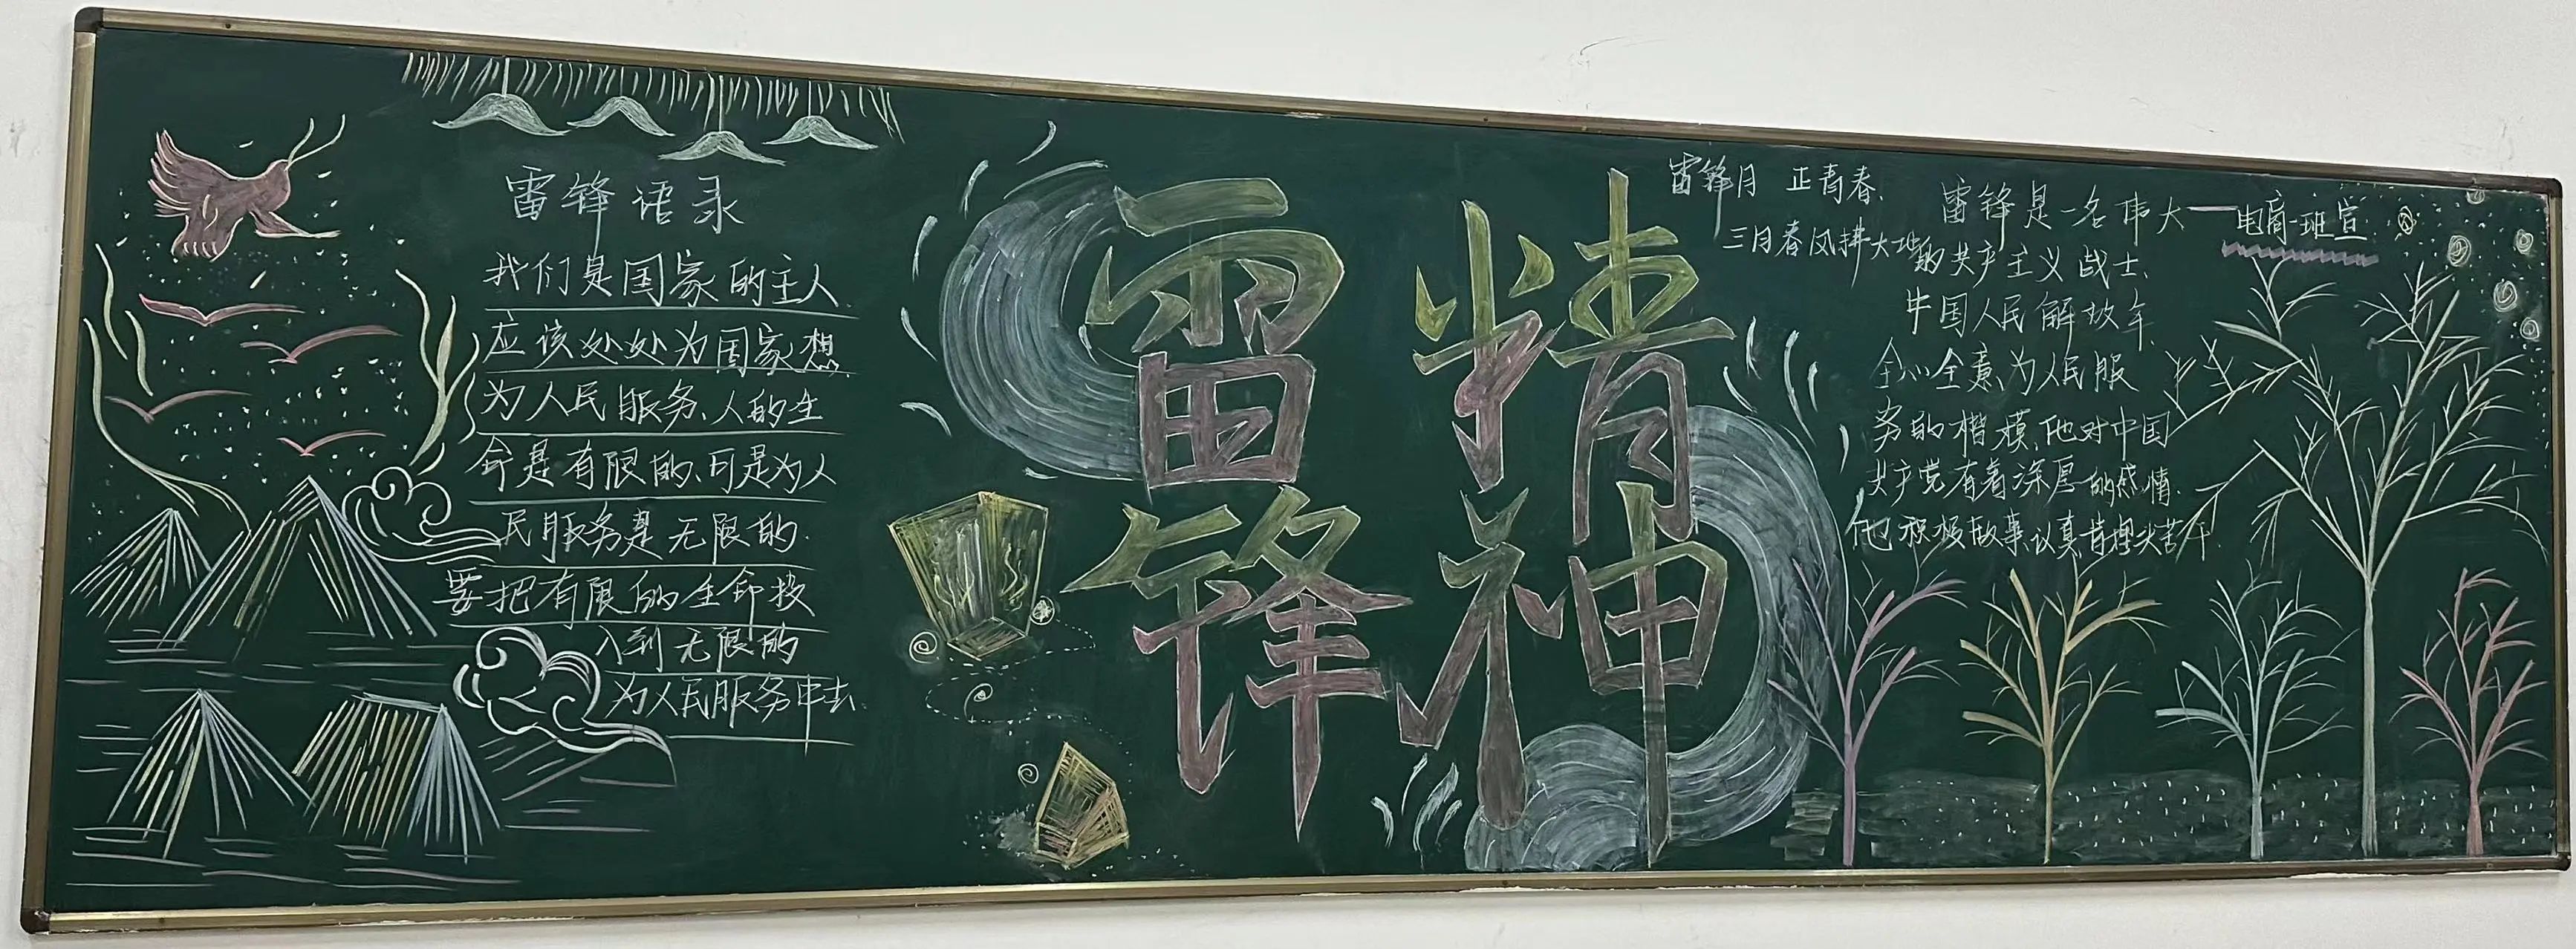 雷锋语录
我们是国家的主人
应该处处为国家想
为人民服务、人的生
命是有限的、可是为人
民服务是无限的
要把有限的生命投
入到无限的
为人民服务中去
雷锋
精神
雷锋月 正青春、
三月春风拂大地
雷锋是一名伟大
的共产主义战士、
中国人民解放军
全心全意为人民服
务的楷模、他对中国
共产党有着深厚的感情、
他积极故事、认真肯埋头苦干
电商一班宣